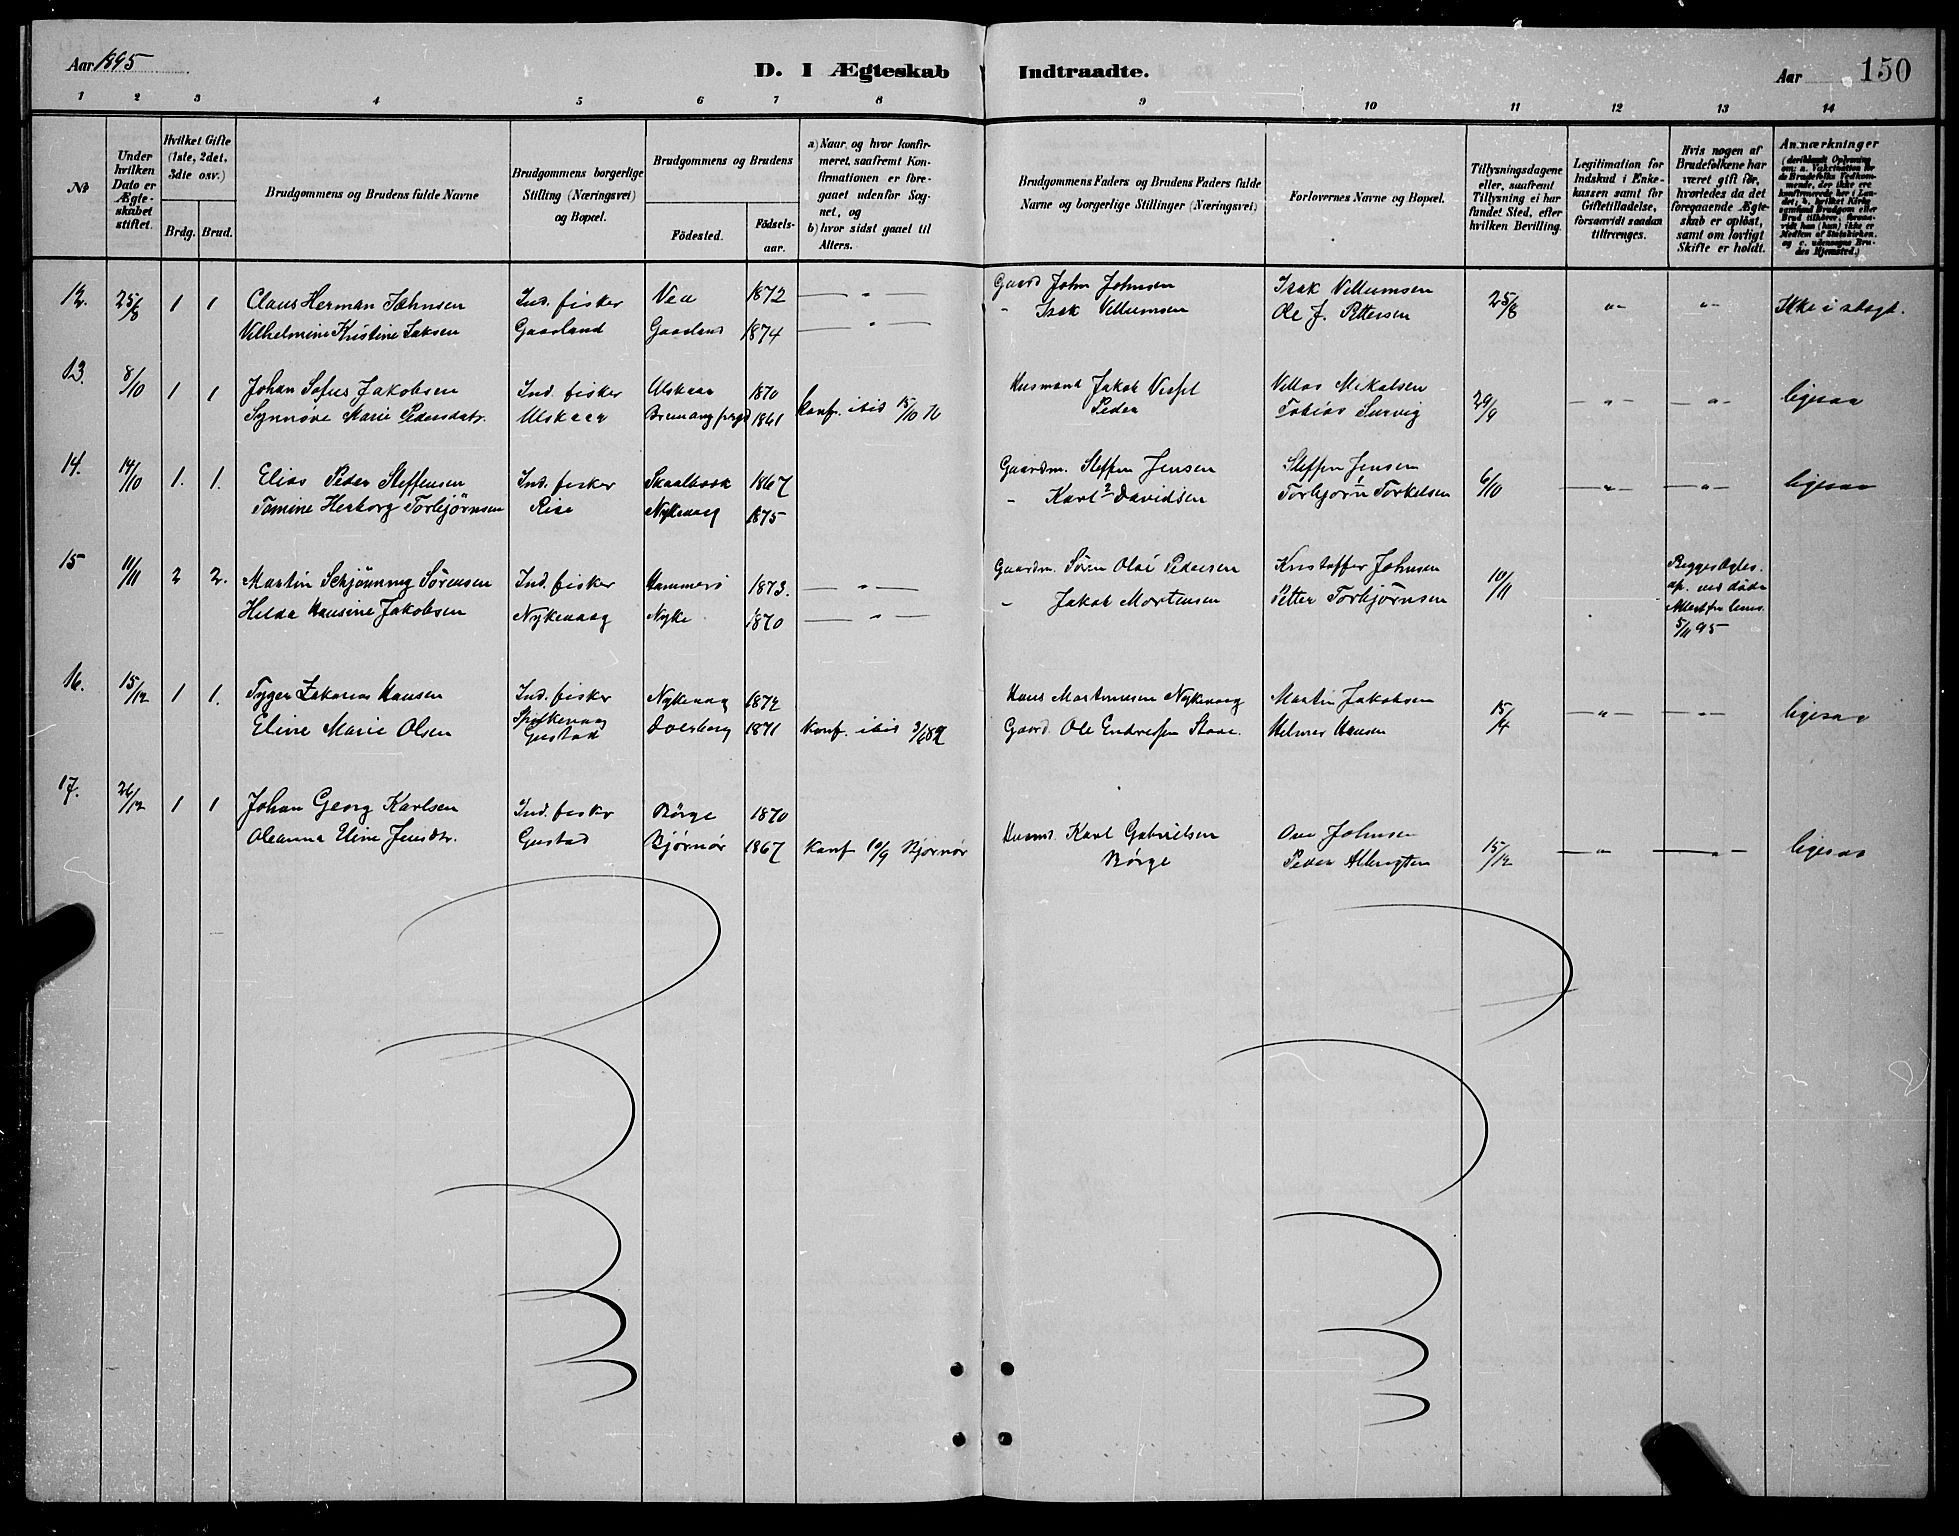 Aar 1895
D. I Ægteskab Indtraadte.
Aar 150
1 2 3 4 5 6 7 8 9 10 11 12 13 14
No
Under hvilken Dato er Ægteskabet stiftet.
Hvilket Gifte (1ste, 2det, 3die osv.)
Brdg. Brud.
Brudgommens og Brudens fulde Navne
Brudgommens borgerlige Stilling (Næringsvei) og Bopæl.
Brudgommens og Brudens
Födested.
Födselsaar.
a) Naar, og hvor konfirmeret, saafremt Konfirmationen er foregaaet udenfor Sognet, og
b) hvor sidst gaaet til Alters.
Brudgommens Faders og Brudens Faders fulde Navne og borgerlige Stillinger (Næringsvei)
Forlovernes Navne og Bopæl.
Tillysningsdagene eller, saafremt Tillysning ei har fundet Sted, efter hvilken Bevilling.
Legitimation for Indskud i Enkekassen samt for Giftetilladelse, forsaavidt saadan tiltrænges.
Hvis nogen af Brudefolkene har været gift för, hvorledes da det foregaaende Ægteskab er oplöst, samt om lovligt Skifte er holdt.
Anmærkninger
12. 25/8 1 1 Claus Herman Johnsen Ind. fisker Vea 1872 — " — Gaard John Johnsen Isak Villumsen 25/8 " " Ikke i slægt.
Vilhelmine Kristine Isaksen Gaasland Gaasland 1874 — " — " Isak Villumsen Ole J. Pettersen
13. 8/10 1 1 Johan Sofus Jakobsen Ind. fisker Alskaar 1870 Husmand Jakob Villas Mikalsen 29/9 — " — — " — ligesaa
Synnøve Marie Pedersdatr. Alskaar 1861 konf. ibid 15/10 76 Peder Tobias Survig
14. 14/10 1. 1. Elias Peder Steffensen Ind. fisker 1867 Gaardm. Steffen Jensen Steffen Jensen 6/10 — " — — " — ligesaa
Tomine Herborg Torbjørnsen Rise Nykvaag 1875 " Karl ? Davidsen Torbjørn Torkelsen
15 11/11 2 2. Martin Schjønning Sørensen Ind. fisker Hammerø 1873. — " — Gaardm. Søren Olai Pedersen Kristoffer Johnsen 10/11 Begges Ægtes. op. ved døden
Helda Hansine Jakobsen Nykvaag Nyke 1870 — " — " Jakob Mortensen Petter Torbjørnsen 5/11 95
16. 15/12 1 1. Tyger Zakarias Hansen Ind. fisker Nykvaag 1872 Hans Martinusen Nykvaag Martin Jakobsen 15/4 — " — — " — ligesaa
Eline Marie Olsen Gustad Dverberg 1871 konf. ibid Gaard. Ole Endresen Stave. Helmer Hansen
17. 26/12 1 1 Johan Georg Karlsen Ind. fisker Børge 1870 Husmd. Karl Gabrielsen Ove Johnsen 15/12 — " — — " — ligesaa
Oleanna Eline Jensdtr. Gustad Bjørnør 1867 konf 10/9 Bjørnør Børge Peder Albrigten